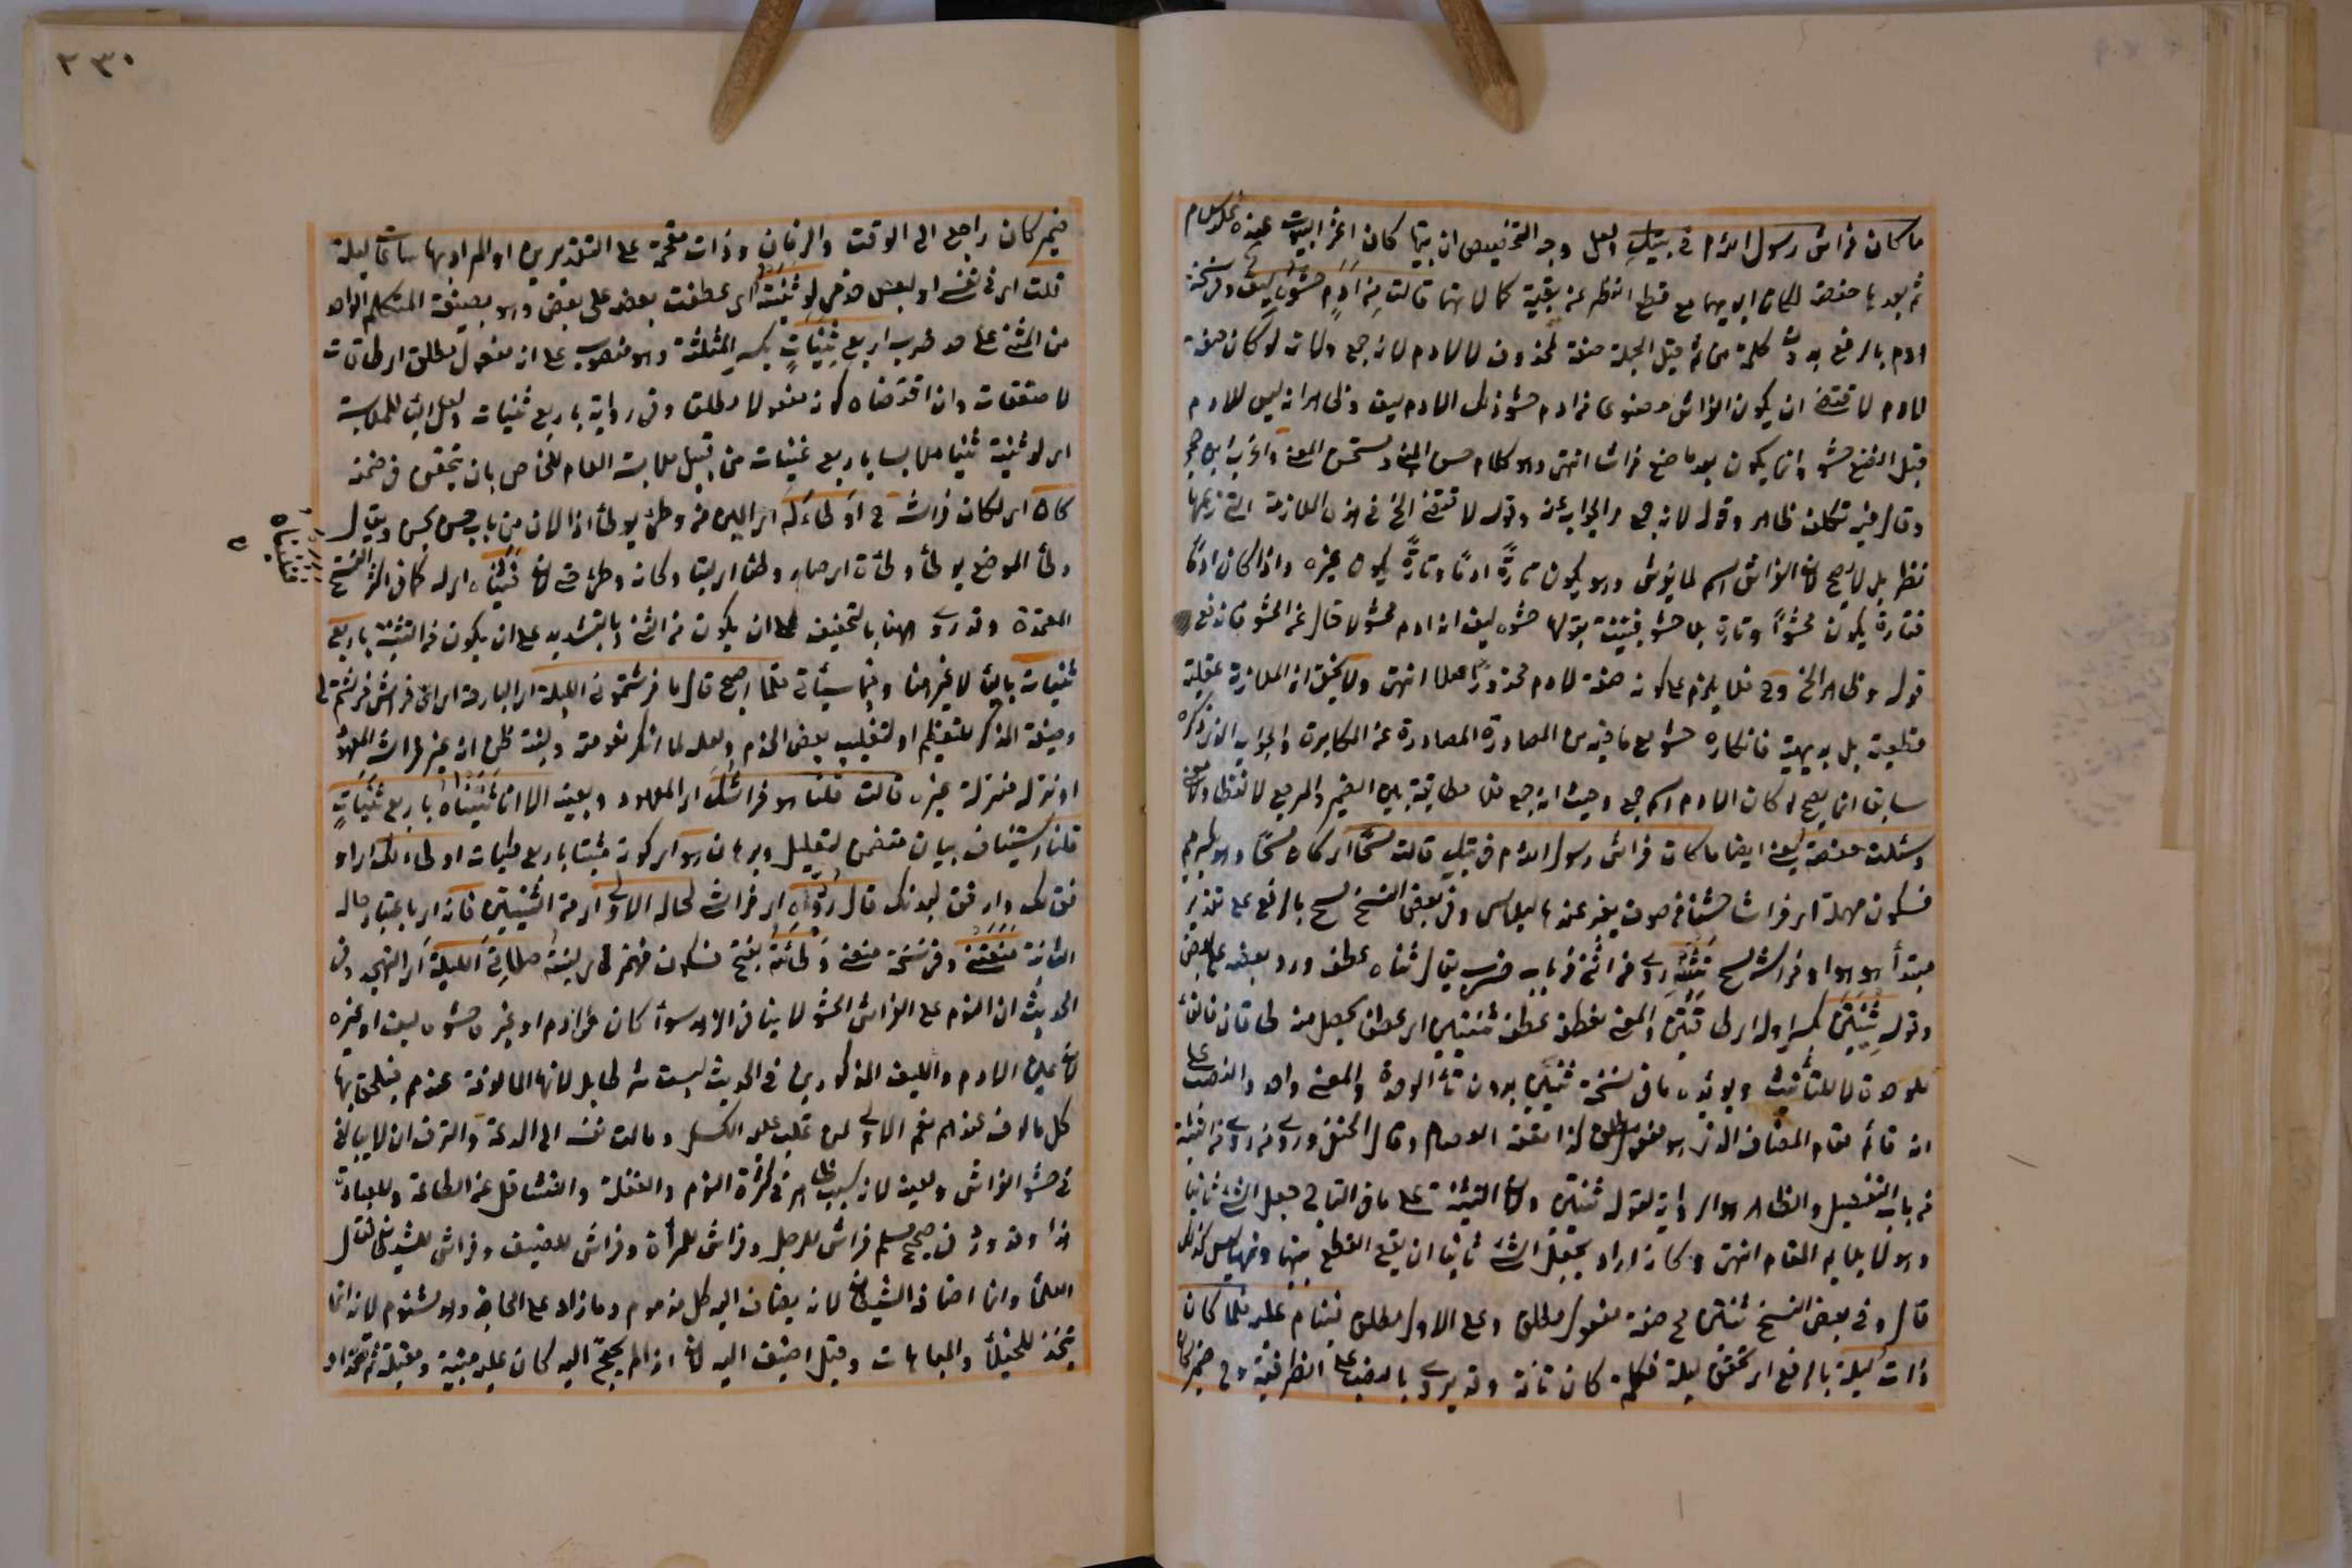 ما كان فراش رسول الله م في بيتك ولعل وجه التخصيص ان بيتها كان اعز البيوت عنده عليه السلام
ثم بعدها حفصة لمكان ابويهما مع قطع النظر عن بقية كمالاتهما قالت من ادم حشوه ليف وفي نسخة
ادم بالرفع بدون كلمة من ثم قيل الجملة صفة لمحذوف لا لادم لانه جمع ولانه لو كان صفة
لادم لاقتضى ان يكون الفراش مصنوعا من ادم حشو ذلك الادم ليف وظاهر انه ليس للادم
قبل الصنع حشو وانما يكون بعد ما صنع فراشا انتهى وهو كلام حسن المبنى ومستحسن المعنى واغرب ابن حجر
وقال فيه تكلف ظاهر وقوله لانه جمع مر الجواب عنه وقوله لاقتضى الخ في هذه الملازمة التي زعمها
نظر بل لا تصح لان الفراش اسم لما يفرش وهو يكون تارة ادما وتارة يكون غيره واذا كان ادما
فتارة يكون محشوا وتارة بلا حشو فبينت بقولها حشوه ليف انه ادم محشو لا خال عن الحشو فاندفع
قوله وظاهر الخ وح فلا يلزم على كونه صفة لادم محذور اصلا انتهى ولا يخفى ان الملازمة عقلية
قطعية بل بديهية فانكاره حشو مع ما فيه من المصادرة المصادرة عن المكابرة والجواب الذي ذكره
سابقا انما يصح لو كان الادم اسم جمع وحيث انه جمع فلا مطابقة بين الضمير والمرجع لا لفظا ولا معنى
وسئلت حفصة يعني ايضا ما كان فراش رسول الله م في بيتك قالت مسحا اي كان مسحا وهو بكسر ميم
فسكون مهملة اي فراشا خشنا من صوف يعبر عنه بالبلاس وفي بعض النسخ مسح بالرفع على تقدير
مبتدأ هو هو او فراشه مسح نثنيه روي من الثني من باب ضرب يقال ثناه عطفه ورد بعضه على بعض
وقوله ثنيتين بكسر اوله اي طاقتين والمعنى نعطفه عطف ثنيتين اي عطفا يحصل منه طاقان فالتاء
للوحدة لا للتأنيث ويؤيده ما في نسخة ثنيين بدون تاء الوحدة والمعنى واحد والنصب على
انه قائم مقام المضاف الذي هو مفعول مطلق كذا حققه العصام وقال الحنفي وروي من التثنية
من باب التفعيل والظاهر هو الرواية لقوله ثنيتين ولان التثنية على ما في التاج جعل الشيء ثانيا
وهو لا يلايم المقام انتهى وكانه اراد بجعل الشيء ثانيا ان يقع القطع بينهما وههنا ليس كذلك
قال وفي بعض النسخ ثنيتين مع صفة مفعول مطلق وعلى الاول مطلق فينام عليه فلما كان
ذات ليلة بالرفع اي تحقق ليلة فكلمة كان تامة وقد يروى بالنصب على الظرفية وح ضمير كان
٢٣٠
ضمير كان راجع الى الوقت والزمان وذات مقحمة على التقديرين او المراد بها ساعات ليلة
قلت اي في نفسي او لبعض خدمي لو ثنيته اي عطفت بعضه على بعض وهو بصيغة المتكلم الواحد
من الثني على حد ضرب اربع ثنيات بكسر المثلثة وهو منصوب على انه مفعول مطلق اي طاقات
لا صفقات وان اقتضاه كونه مفعولا مطلقا وفي رواية باربع ثنيات ولعل الباء للملابسة
اي لو ثنيته ثنيا ملابسا باربع ثنيات من قبيل ملابسة العام للخاص بان يتحقق في ضمنه
كان اي لكان فراشه ح اوطأ له اي الين من وطئ يوطأ اذا لان من باب حسن يحسن ويقال
وطأ الموضع يوطأ وطأة اي صار وطيئا اي لينا وكأنه وطئ حتى لان فثنيناه اي له كما في اكثر النسخ
المعتمدة وقد روي ههنا بالتخفيف على ان يكون من الثني وبالتشديد على ان يكون من التثنية باربع
ثنيات بالباء لا غير هنا وفيما سيأتي فلما اصبح قال ما فرشتموني الليلة اي البارحة اي اي فراش فرشتم لي
وصيغة المذكر للتعظيم او لتغليب بعض الخدم ولعله لما انكر نعومته ولينه ظن انه غير فراشه المعهود
او نزله منزلة غيره قالت قلنا هو فراشك اي المعهود وبعينه الا انا ثنيناه باربع ثنيات
قلنا استيناف بيان متضمن لتعليل وبرهان هو اي كونه مثنيا باربع ثنيات اوطأ لك اي اوفق لك
وارفق لبدنك قال ردوه اي فراشي لحاله الاولى اي من الثنيتين فانه اي باعتبار حاله
الثانية منعني وفي نسخة منعتني وطأته بفتح فسكون فهمز اي لينته صلاتي الليلة اي التهجد وفي
الحديث ان النوم على الفراش المحشو لا ينافي الزهد سواء كان من ادم او غيره حشوه ليف او غيره
لان عين الادم والليف المذكورين في الحديث ليست شرطا بل لانها المالوفة عندهم فيلحق بها
كل مالوف عندهم نعم الاولى لمن غلب عليه الكسل ومالت نفسه الى الدعة والترف ان لا يبالغ
في حشو الفراش ولينه لانه سبب ظاهر في كثرة النوم والغفلة والتثاقل عن الطاعة والعبادة
هذا وقد ورد في صحيح مسلم فراش للرجل وفراش للمرأة وفراش للضيف وفراش للشيطان فقال
العلماء وانما اضافه للشيطان لانه يضاف اليه كل مذموم وما زاد على الحاجة وهو مشئوم لانه انما
يتخذ للخيلاء والمباهات وقيل اضيف اليه لانه اذا لم يحتج اليه كان عليه مبيته ومقيله ثم تعدد
فثنيناه